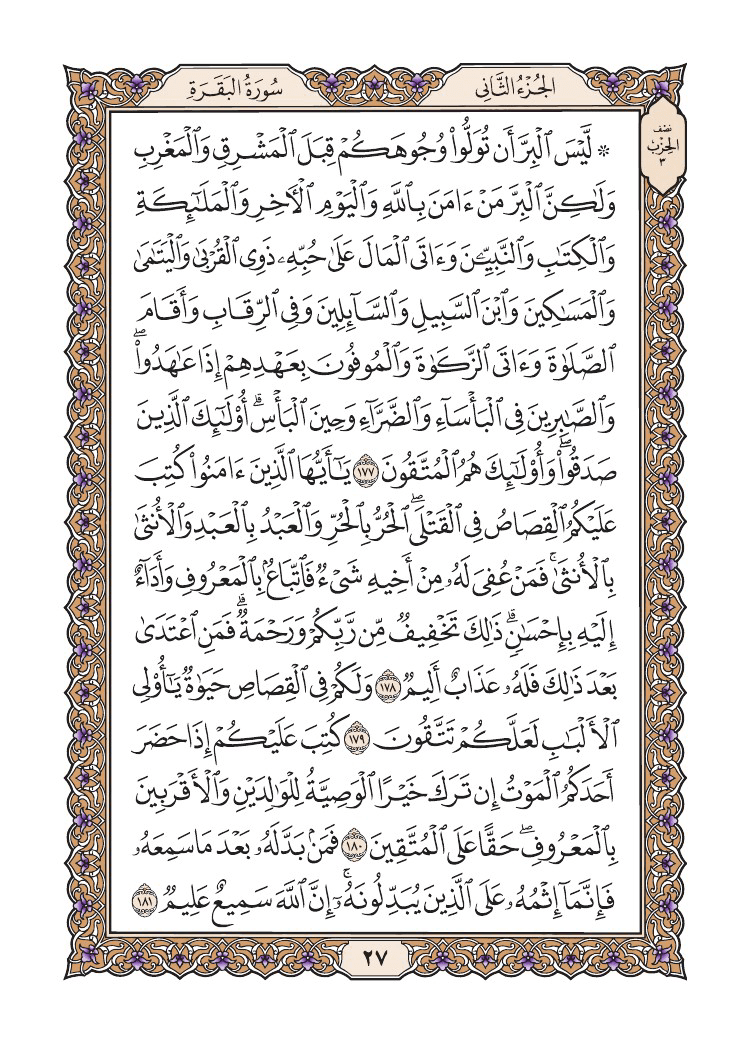 الجُزْءُ الثَّانِي
سُورَةُ البَقَرَةِ
نصف
الحِزْب
٣
۞ لَّيْسَ ٱلْبِرَّ أَن تُوَلُّوا۟ وُجُوهَكُمْ قِبَلَ ٱلْمَشْرِقِ وَٱلْمَغْرِبِ
وَلَٰكِنَّ ٱلْبِرَّ مَنْ ءَامَنَ بِٱللَّهِ وَٱلْيَوْمِ ٱلْـَٔاخِرِ وَٱلْمَلَٰٓئِكَةِ
وَٱلْكِتَٰبِ وَٱلنَّبِيِّـۧنَ وَءَاتَى ٱلْمَالَ عَلَىٰ حُبِّهِۦ ذَوِى ٱلْقُرْبَىٰ وَٱلْيَتَٰمَىٰ
وَٱلْمَسَٰكِينَ وَٱبْنَ ٱلسَّبِيلِ وَٱلسَّآئِلِينَ وَفِى ٱلرِّقَابِ وَأَقَامَ
ٱلصَّلَوٰةَ وَءَاتَى ٱلزَّكَوٰةَ وَٱلْمُوفُونَ بِعَهْدِهِمْ إِذَا عَٰهَدُوا۟ ۖ
وَٱلصَّٰبِرِينَ فِى ٱلْبَأْسَآءِ وَٱلضَّرَّآءِ وَحِينَ ٱلْبَأْسِ ۗ أُو۟لَٰٓئِكَ ٱلَّذِينَ
صَدَقُوا۟ ۖ وَأُو۟لَٰٓئِكَ هُمُ ٱلْمُتَّقُونَ ١٧٧ يَٰٓأَيُّهَا ٱلَّذِينَ ءَامَنُوا۟ كُتِبَ
عَلَيْكُمُ ٱلْقِصَاصُ فِى ٱلْقَتْلَى ۖ ٱلْحُرُّ بِٱلْحُرِّ وَٱلْعَبْدُ بِٱلْعَبْدِ وَٱلْأُنثَىٰ
بِٱلْأُنثَىٰ ۚ فَمَنْ عُفِىَ لَهُۥ مِنْ أَخِيهِ شَىْءٌ فَٱتِّبَاعٌۢ بِٱلْمَعْرُوفِ وَأَدَآءٌ
إِلَيْهِ بِإِحْسَٰنٍ ۗ ذَٰلِكَ تَخْفِيفٌ مِّن رَّبِّكُمْ وَرَحْمَةٌ ۗ فَمَنِ ٱعْتَدَىٰ
بَعْدَ ذَٰلِكَ فَلَهُۥ عَذَابٌ أَلِيمٌ ١٧٨ وَلَكُمْ فِى ٱلْقِصَاصِ حَيَوٰةٌ يَٰٓأُو۟لِى
ٱلْأَلْبَٰبِ لَعَلَّكُمْ تَتَّقُونَ ١٧٩ كُتِبَ عَلَيْكُمْ إِذَا حَضَرَ
أَحَدَكُمُ ٱلْمَوْتُ إِن تَرَكَ خَيْرًا ٱلْوَصِيَّةُ لِلْوَٰلِدَيْنِ وَٱلْأَقْرَبِينَ
بِٱلْمَعْرُوفِ ۖ حَقًّا عَلَى ٱلْمُتَّقِينَ ١٨٠ فَمَنۢ بَدَّلَهُۥ بَعْدَ مَا سَمِعَهُۥ
فَإِنَّمَآ إِثْمُهُۥ عَلَى ٱلَّذِينَ يُبَدِّلُونَهُۥٓ ۚ إِنَّ ٱللَّهَ سَمِيعٌ عَلِيمٌ ١٨١
٢٧